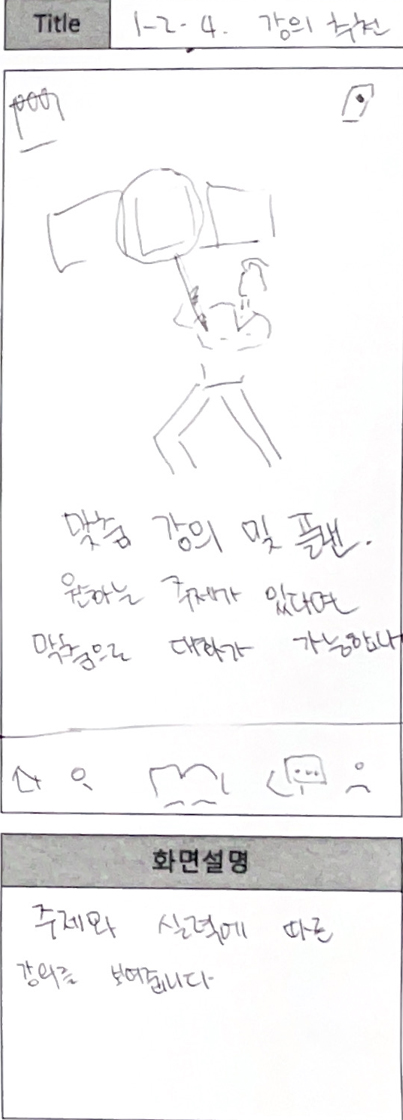 Title 1-2-4. 강의 추천
맞춤 강의 및 플랜.
원하는 주제가 있다면
맞춤으로 대화가 가능합니다
화면설명
주제와 실력에 따른
강의를 보여줍니다